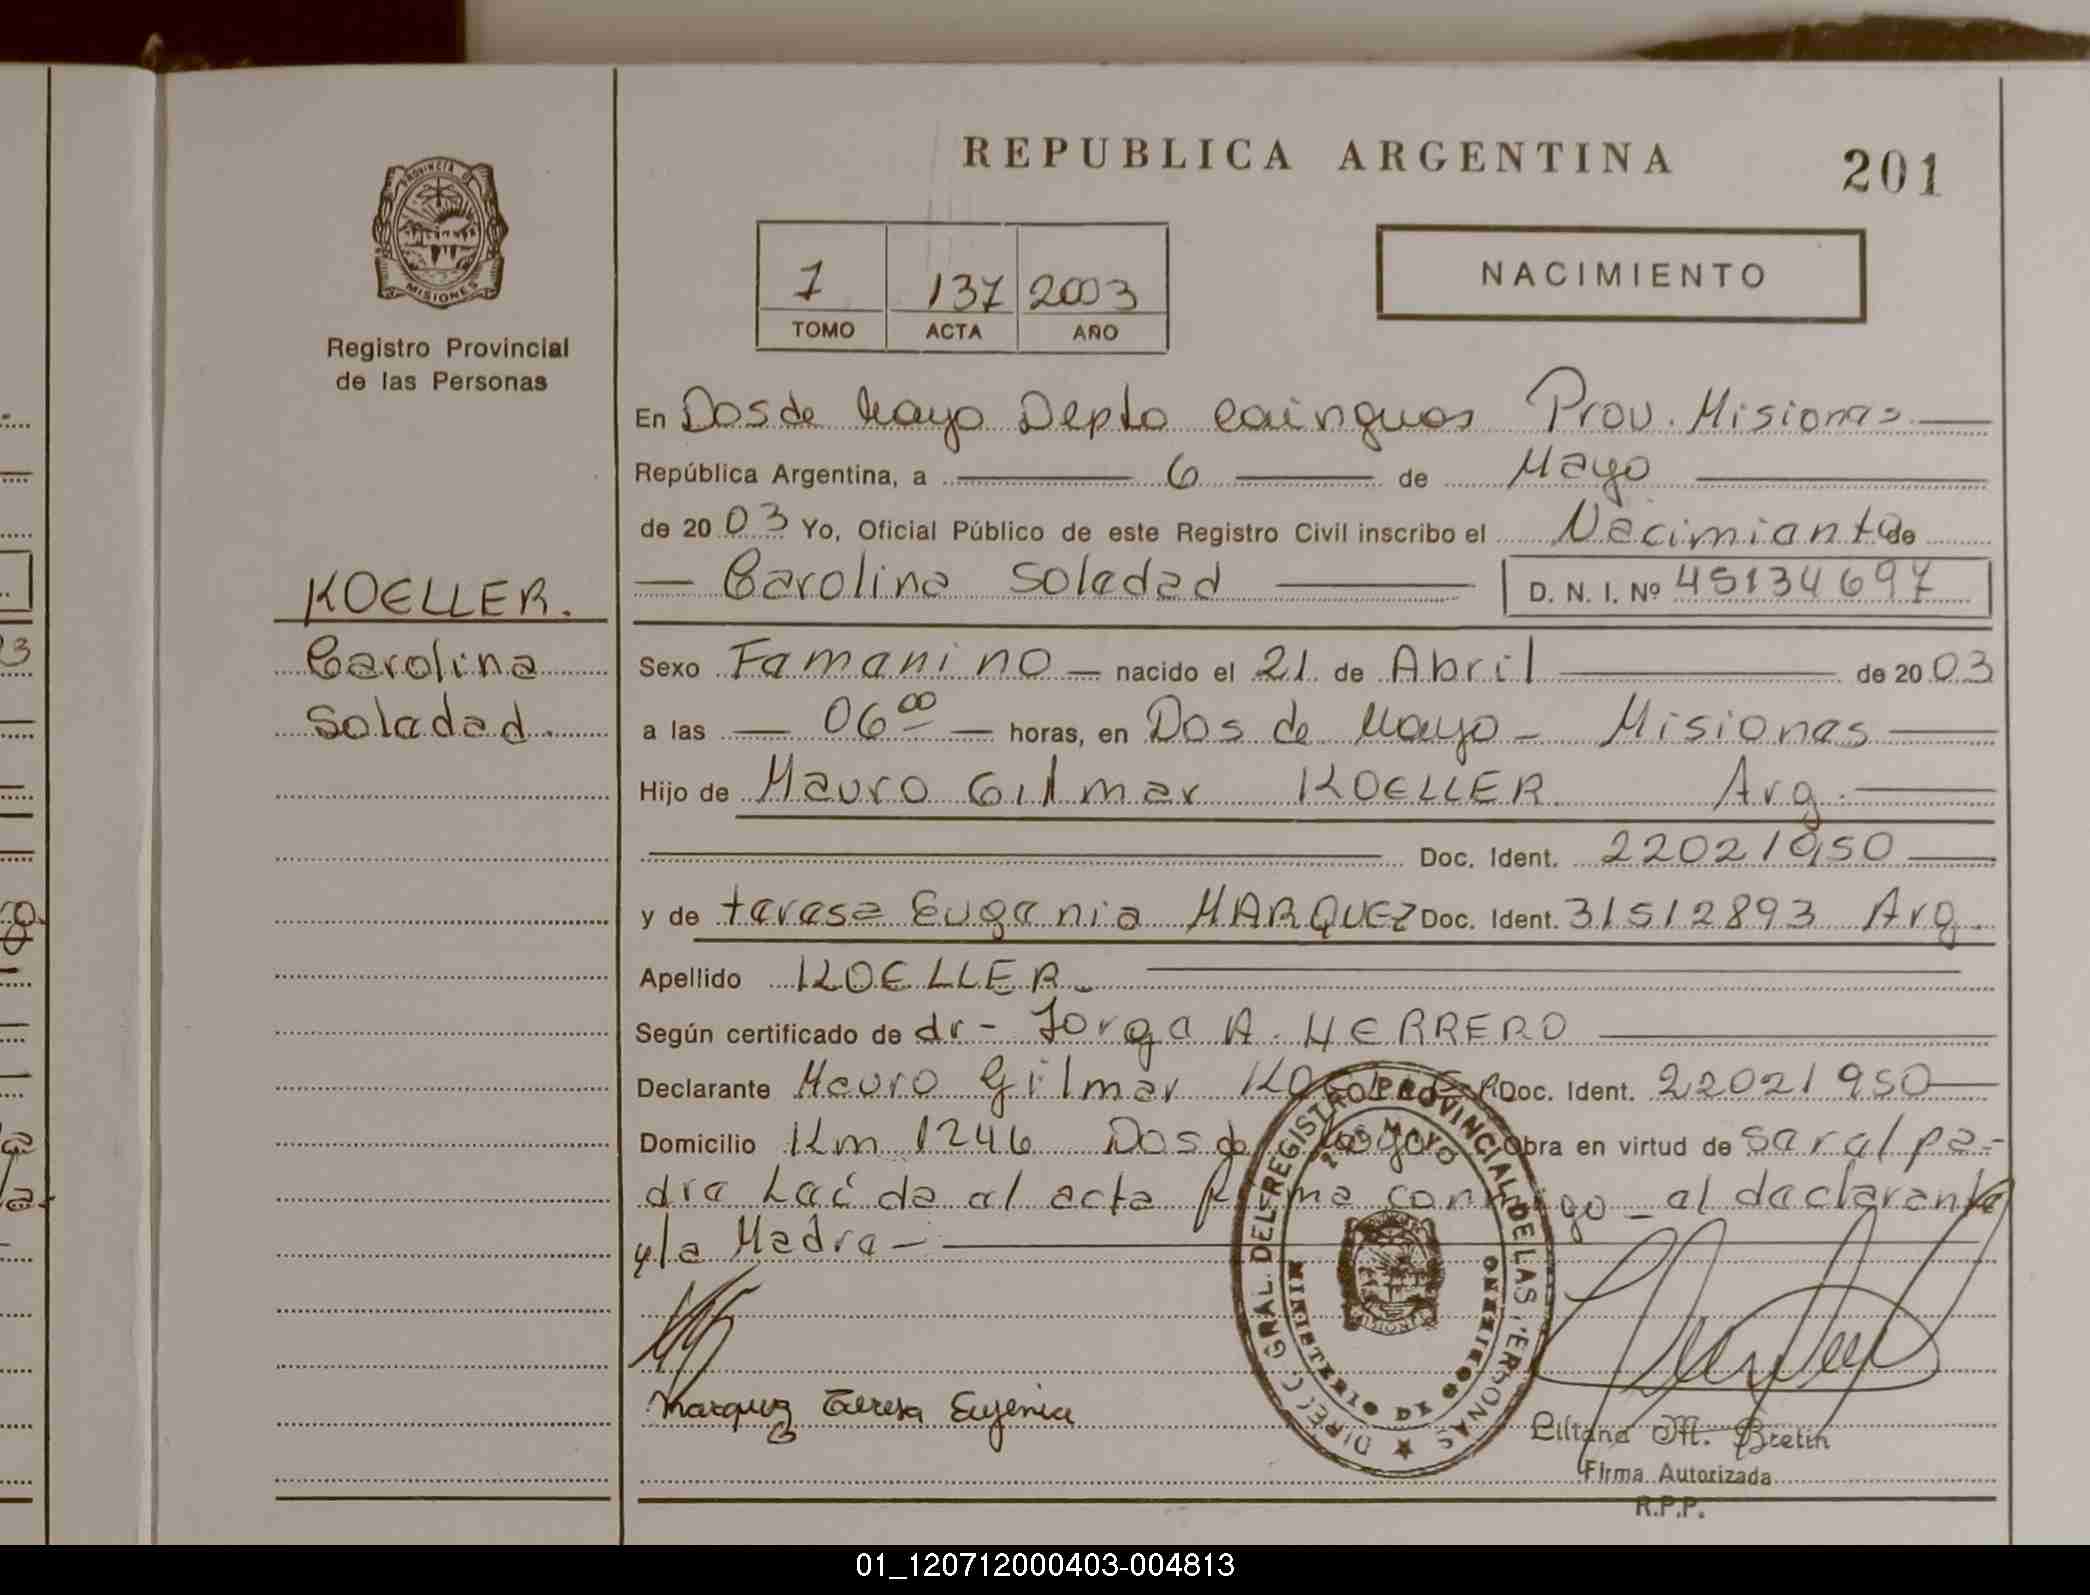 REPUBLICA ARGENTINA
201
PROVINCIA DE
MISIONES
Registro Provincial
de las Personas
KOELLER.
Carolina
Soledad.
1 137 2003
TOMO ACTA AÑO
NACIMIENTO
En Dos de Mayo Depto Cainguas Prov. Misiones
República Argentina, a 6 de Mayo
de 2003 Yo, Oficial Público de este Registro Civil inscribo el Nacimiento de
Carolina Soledad D. N. I. Nº 45134697
Sexo Femenino nacido el 21 de Abril de 2003
a las 06⁰⁰ horas, en Dos de Mayo - Misiones
Hijo de Mauro Gilmar KOELLER Arg.
Doc. Ident. 22021950
y de teresa Eugenia MARQUEZ Doc. Ident. 31512893 Arg.
Apellido KOELLER.
Según certificado de dr- Jorge A. HERRERO
Declarante Mauro Gilmar KOELLER Doc. Ident. 22021950
Domicilio Km 1246 Dos de Mayo Obra en virtud de ser el pa-
dre Leída el acta firma conmigo - el declarante
y la Madre -
Marquez Teresa Eugenia
DIREC. GRAL. DEL REGISTRO PROVINCIAL DE LAS PERSONAS
2 DE MAYO
MINISTERIO DE GOBIERNO
Liliana M. Bretin
Firma Autorizada
R.P.P.
01_120712000403-004813